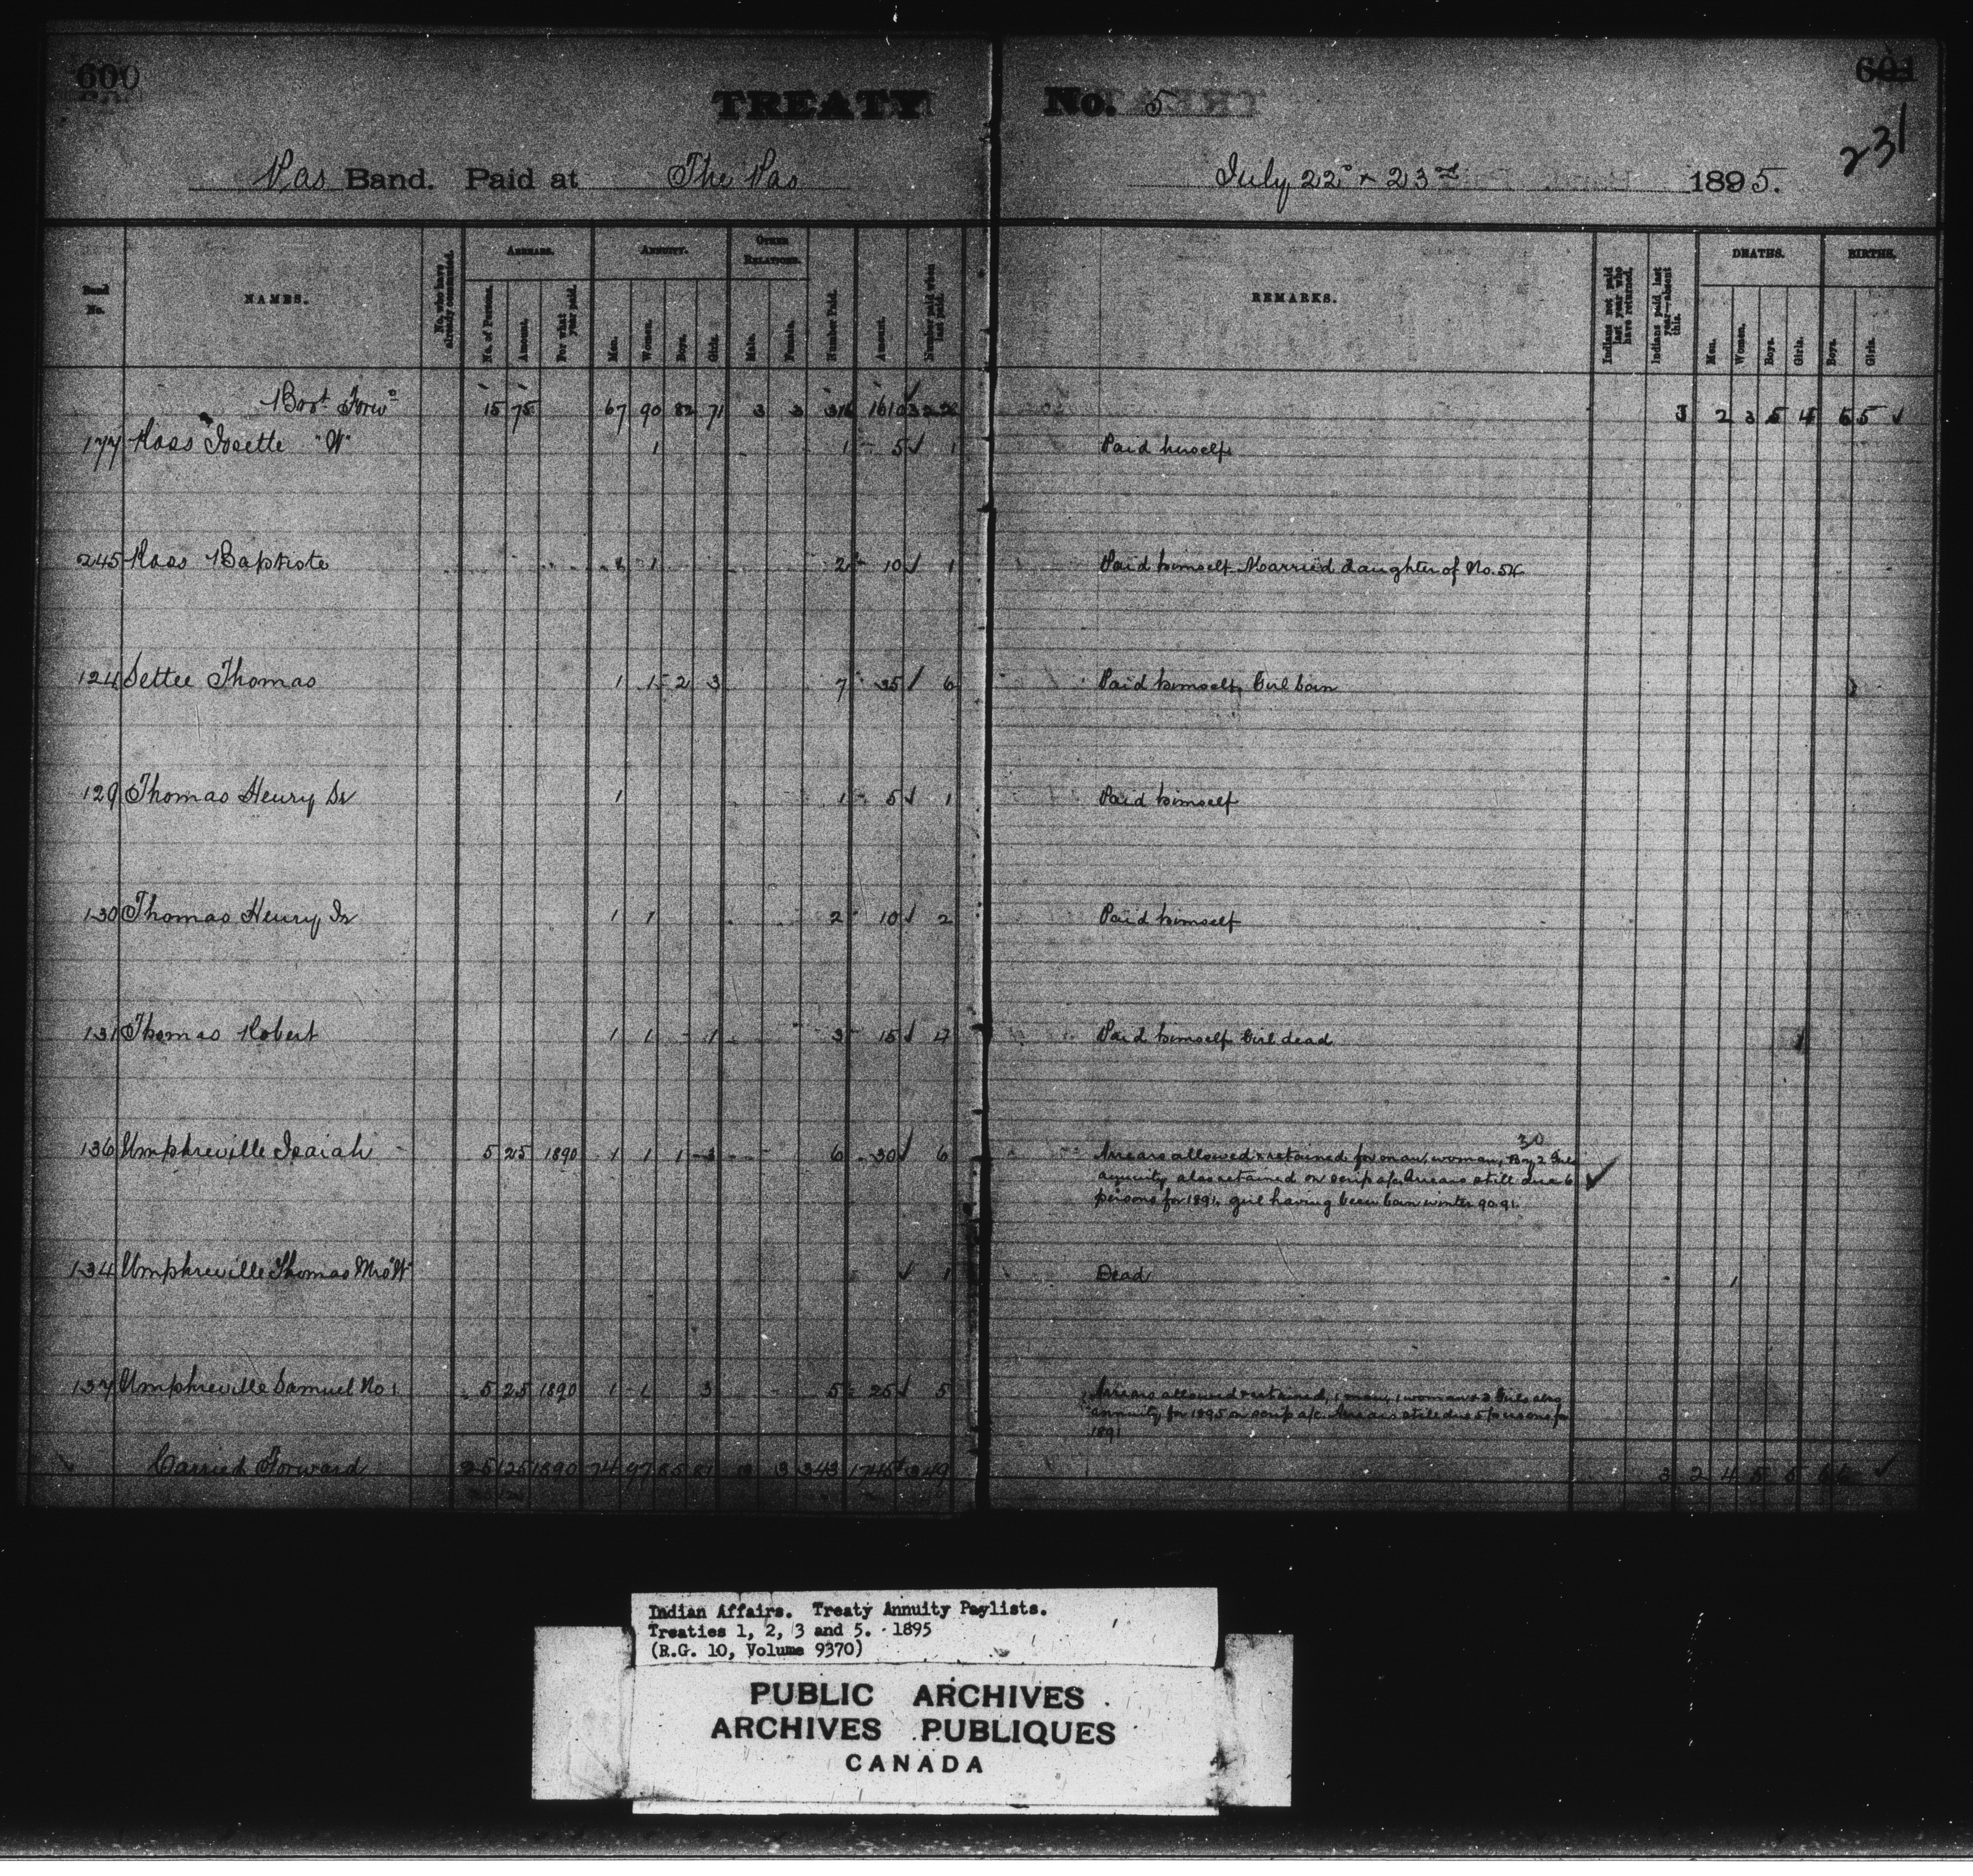 600
601
231
TREATY No. 5
Pas Band. Paid at The Pas July 22d & 23rd 1895.
Band No.
NAMES.
No. who have already commuted.
ARREARS.
No. of Persons.
Amount.
For what year paid.
ANNUITY.
Men.
Women.
Boys.
Girls.
OTHER RELATIONS.
Male.
Female.
Number Paid.
Amount.
Number paid when last paid.
REMARKS.
Indians not paid last year who have returned.
Indians paid last year—absent this.
DEATHS.
Men.
Women.
Boys.
Girls.
BIRTHS.
Boys.
Girls.
Brot. Forwd 15 75 67 90 82 71 3 3 316 1610 3 2 3 5 4 5 5
177 Ross Josette "W" 1 1 5 1 Paid herself
245 Ross Baptiste 1 1 2 10 1 Paid himself Married daughter of No.
124 Settee Thomas 1 1 2 3 7 35 6 Paid himself, Girl born 1
129 Thomas Henry Sr 1 1 5 1 Paid himself
130 Thomas Henry Jr 1 1 2 10 2 Paid himself
131 Thomas Robert 1 1 1 3 15 4 Paid himself Girl dead 1
136 Umphreville Isaiah 5 25 1890 1 1 1 3 6 30 6 Arrears allowed & retained for man, woman, Boy 2 Girls
30
annuity also retained on scrip a/c. Arrears still due 6
persons for 1891. girl having been born winter 90.91.
134 Umphreville Thomas Mrs "W" 1 Dead 1
137 Umphreville Samuel No 1. 5 25 1890 1 1 3 5 25 5 Arrears allowed & retained, 1 man, 1 woman & 3 Girls also
annuity for 1895 on scrip a/c. Arrears still due 5 persons for
1891
Carried Forward 25 125 1890 74 97 85 81 3 3 343 1745 349 3 2 4 5 5 6 6
Indian Affairs. Treaty Annuity Paylists.
Treaties 1, 2, 3 and 5. 1895
(R.G. 10, Volume 9370)
PUBLIC ARCHIVES
ARCHIVES PUBLIQUES
CANADA